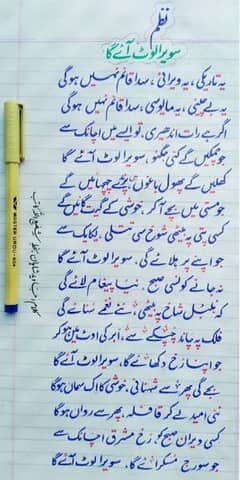 نظم
سویرا لوٹ آئے گا
یہ تاریکی، یہ ویرانی، سدا قائم نہیں ہوگی
یہ بے چینی، یہ مایوسی، سدا قائم نہیں ہوگی
اگر ہے رات اندھیری، تو ایسے میں اچانک سے
جو چمکیں گے کئی جگنو، سویرا لوٹ آئے گا
کھلیں گے پھول باغوں میں، پرندے چہچہائیں گے
جو مستی میں بچے آ کر، خوشی کے گیت گائیں گے
کسی پتی پہ بیٹھی شوخ سی تتلی، یکایک سے
جو اپنے پر ہلائے گی، سویرا لوٹ آئے گا
نہ جانے کونسی صبح، نیا پیغام لائے گی
کہ بلبل شاخ پہ بیٹھی، نئے نغمے سنائے گی
فلک پہ چاند چپکے سے، ابر کی اوٹ میں ہو کر
جو اپنا رخ دکھائے گا، سویرا لوٹ آئے گا
بجے گی پھر سے شہنائی، خوشی کا اک سماں ہوگا
نئی امید لے کر قافلہ، پھر سے رواں ہوگا
کسی دن صبح کو، رخِ مشرق اچانک سے
جو سورج مسکرائے گا، سویرا لوٹ آئے گا
MASTER URDU